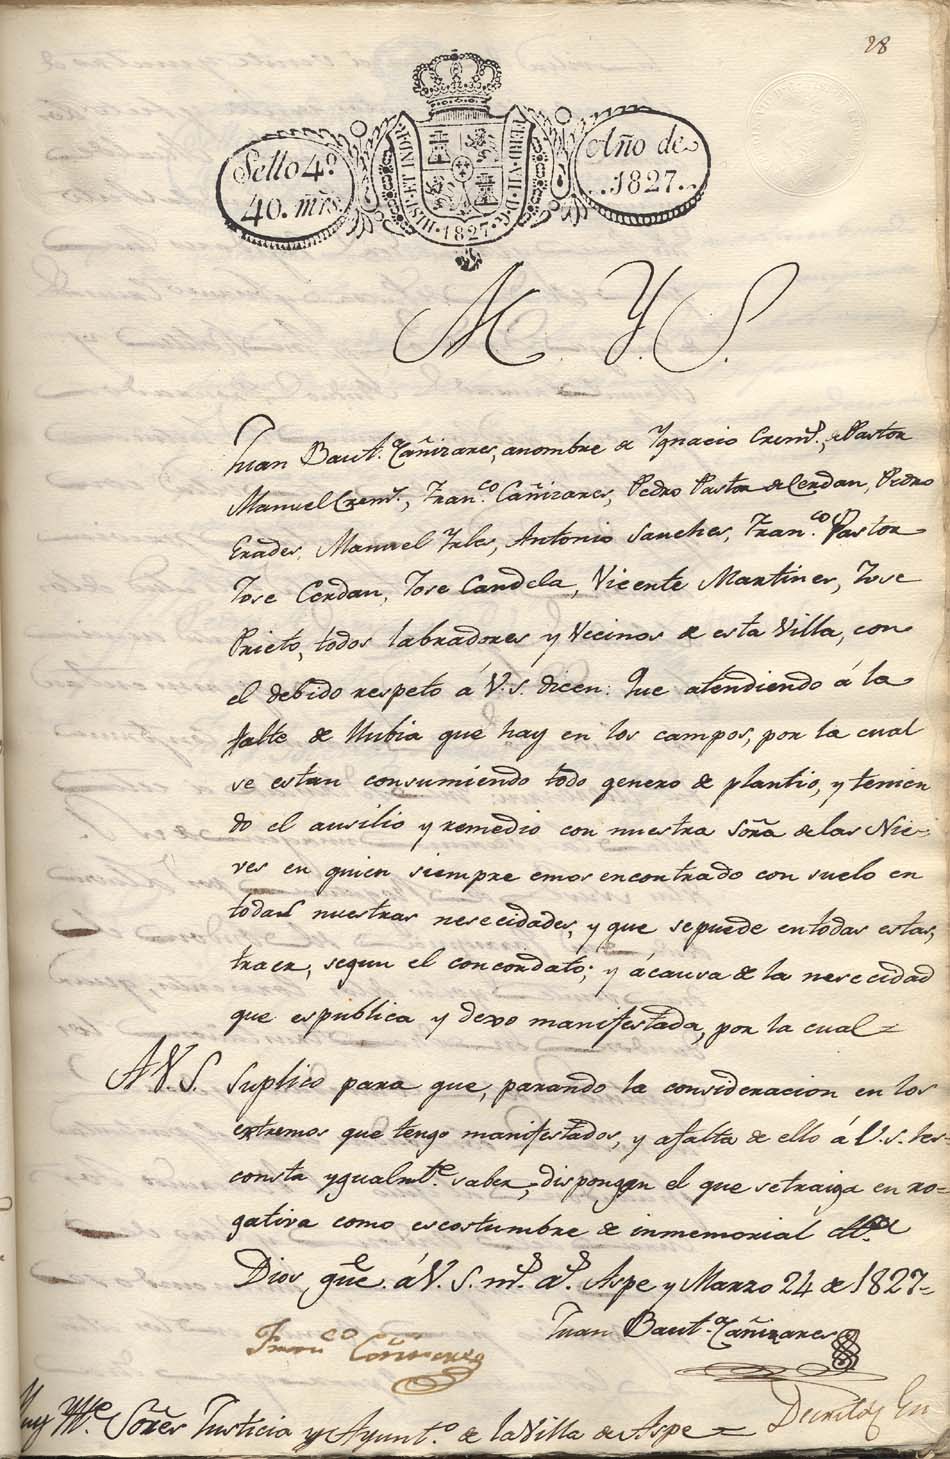 28
Sello 4º
40. mrs
HISP. ET IND. R.
FERD. VII. D. G.
1827
Año de
1827.
M. Y. S.
Juan Baut.ª Cañizares, anombre de Ygnacio Crem.s, de Pastor
Manuel Crem.s, Fran.co Cañizares, Pedro Pastor de Cerdan, Pedro
Erades, Manuel Yrles, Antonio Sanches, Fran.co Pastor
Jose Cerdan, Jose Candela, Vicente Martines, Jose
Prieto, todos labradores y Vecinos de esta Villa, con
el debido respeto á V. S. dicen: Que atendiendo á la
falte de llubia que hay en los campos, por la cual
se estan consumiendo todo genero de plantio, y tenien
do el ausilio y remedio con nuestra Señra de las Nie-
ves en quien siempre emos encontrado con suelo en
todas nuestras nesecidades, y que sepuede entodas estas,
traer, segun el concordato; y ácausa de la nesecidad
que espublica y dexo manifestada, por la cual=
A V. S. Suplico para que, parando la consideracion en los
extremos que tengo manifestados, y afalta de ello á V. S. les
consta ygualmt.e saber, dispongan el que setraiga en ro=
gativa como escostumbre de inmemorial
Dios gue. á V. S. m.s a.s Aspe y Marzo 24 de 1827=
Juan Baut.ª Cañizares
Fran.co Cañizares
Muy Yltre. Señres Justicia y Ayunt.o de la Villa de Aspe =